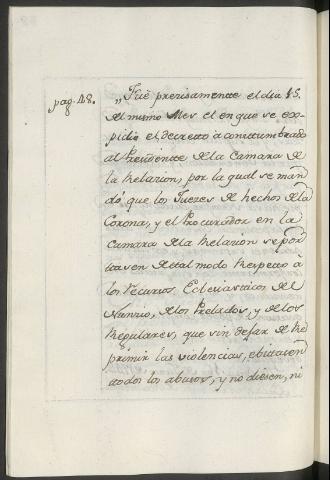 pag. 48.
„Fuè precisamente el dia 15.
del mismo Mes el en que se ex-
pidio el decreto acostumbrado
al Presidente de la Camara de
la Relacion, por la qual se man-
dó, que los Jueces de hechos de la
Corona, y el Procurador en la
Camara de la Relacion se por-
tasen de tal modo respecto à
los Recursos Eclesiasticos del
Nuncio, de los Prelados, y de los
Regulares, que sin dejar de Re-
primir las violencias, ebitasen
todos los abusos, y no diesen, ni